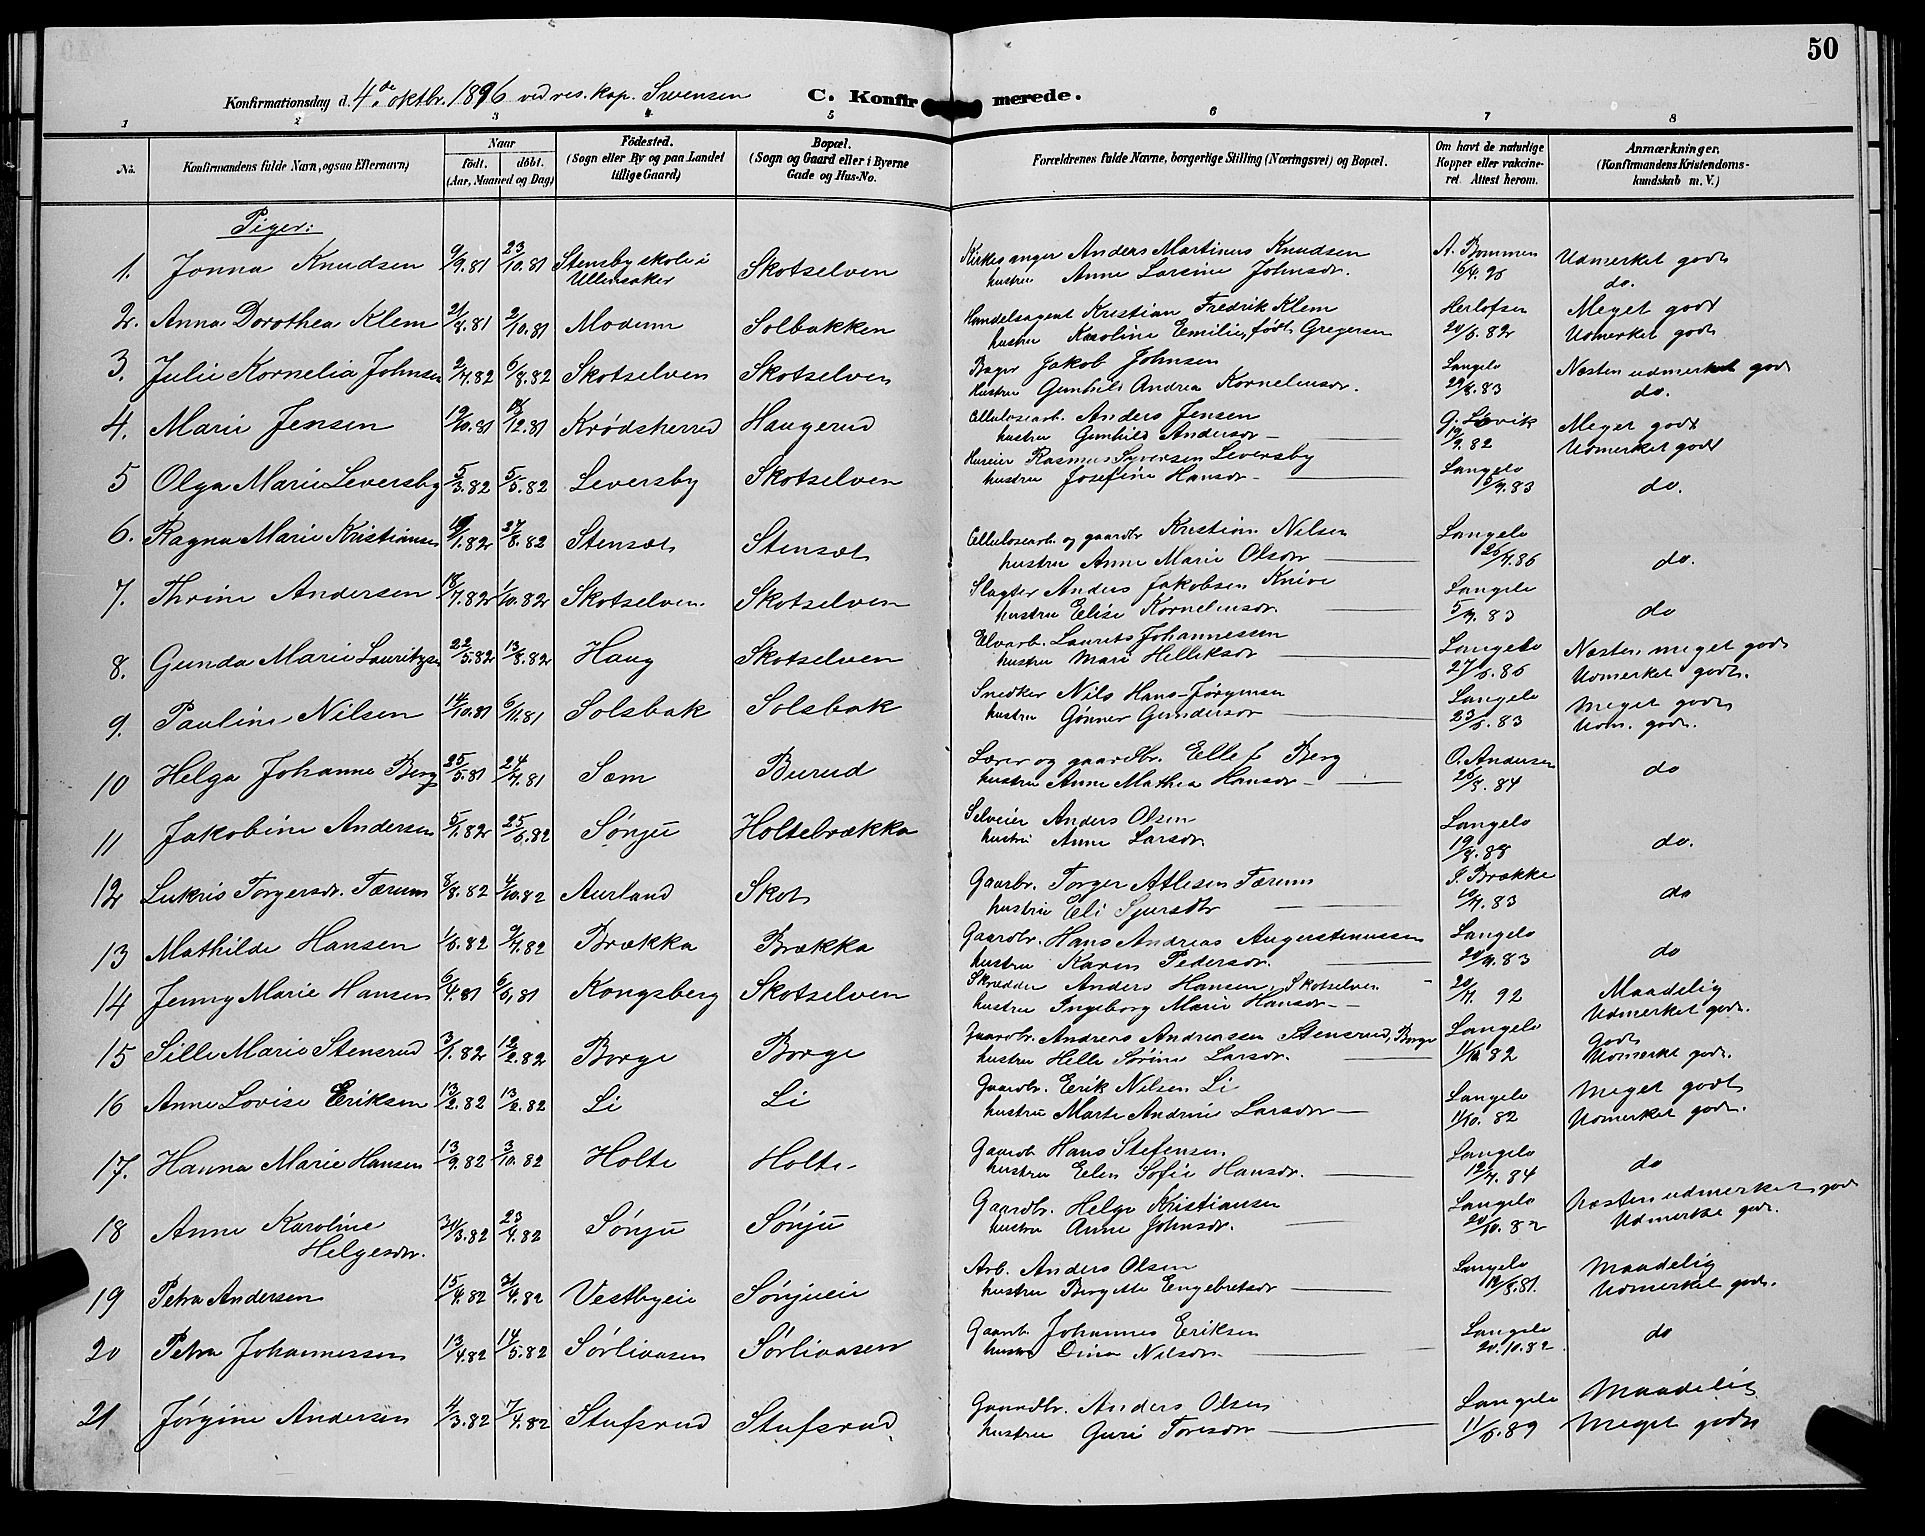 50
Konfirmationsdag d. 4de oktbr. 1896 ved res. kap. Svensen
C. Konfirmerede.
1 2 3 4 5 6 7 8
No.
Konfirmandens fulde Navn, ogsaa Efternavn)
Naar
födt. döbt.
(Aar, Maaned og Dag)
Födested.
(Sogn eller By og paa Landet
tillige Gaard)
Bopæl.
(Sogn og Gaard eller i Byerne
Gade og Hus-No.
Forældrenes fulde Navne, borgerlige Stilling (Næringsvei) og Bopæl.
Om havt de naturlige
Kopper eller vakcine-
ret. Attest herom.
Anmærkninger,
(Konfirmandens Kristendoms-
kundskab m. V.)
Piger:
1. Jonna Knudsen 9/9.81 23/10.81 Stensby skole i Ullensaker Skotselven Kirkesanger Anders Martinus Knudsen A. Bommen Udmerket godt
hustru Anne Larsine Johnsdr. 16/4.96 do.
2. Anna Dorothea Klem 21/8.81 2/10.81 Modum Solbakken Handelsagent Kristian Fredrik Klem Herlofsen Meget godt
hustru Karoline Emilie, født Gregersen 20/6.82 Udmerket godt
3. Julie Kornelia Johnsen 2/7.82 6/8.82 Skotselven Skotselven Bager Jakob Johnsen Langelo Næsten udmerket godt
hustru Gunhild Andrea Kornelinsdr. 29/8.83 do.
4. Marie Jensen 19/10.81 /12.81 Krødsherred Haugerud Cellulosearb. Anders Jensen G. Løvik Meget godt
hustru Gunhild Andersdr 19/9.82 Udmerket godt
5 Olga Marie Leversby 5/3.82 5/5.82 Leversby Skotselven Huseier Rasmus Syversen Leversby Langelo
hustru Josefine Hansdr 5/9.83 do.
6. Ragna Marie Kristiansen /1.82 27/8.82 Stensæt Stensæt Cellulosearb. og gaardbr Kristian Nilsen Langelo
hustru Anne Marie Olsdr 26/7.86 do.
7. Thrine Andersen 18/7.82 1/10.82 Skotselven. Skotselven Slagter Anders Jakobsen Knive Langelo
hustru Elise Kornelinsdr. 5/9.83 do
8. Gunda Marie Lauritzen 22/5.82 13/8.82 Haug Skotselven Elvarb. Laurits Johannessen Langelo Næsten meget godt
hustru Mari Helliksdr 27/6.86 Udmerket godt.
9. Pauline Nilsen 14/10.81 6/11.81 Solsbak Solsbak Snedker Nils Hans-Jørgensen Langelo Meget godt
hustru Gønner Gundersdr 23/6.83 Udm. godt.
10 Helga Johanne Berg 25/5.81 24/7.81 Sem Burud Lærer og gaardbr. Ellef Berg O. Andersen
hustru Anne Mathea Hansdr 26/8.84 do
11 Jakobine Andersen 5/1.82 25/6.82 Sønju Holtebrækka Selveier Anders Olsen Langelo
hustru Anne Larsdr. 19/8.88 do.
12 Lukris Torgersdr. Tærum 8/8.82 4/10.82 Aurland Skot Gaarbr. Torger Atlesen Tærum J. Brække
hustru Eli Sjursdtr 10/7.83 do
13 Mathilde Hansen 1/6.82 9/7.82 Brækka Brækka Gaardbr. Hans Andreas Augustinussen Langelo
hustru Karen Pedersdr. 20/9.83 do
14 Jenny Marie Hansen 6/4.81 6/6.81 Kongsberg Skotselven Skredder Anders Hansen, Skotselven 20/7. 92 Maadelig
hustru Ingeborg Marie Hansdr Udmerket godt.
15 Sille Marie Stensrud 3/1.82 12/2.82 Borge Borge Gaardbr. Andreas Andreassen Stensrud, Borge Langelo Godt
hustru Helle Sørine Larsdr. 1/10 82 Udmerket godt.
16 Anne Lovise Eriksen 13/2.82 13/2.82 Li Li Gaardbr. Erik Nilsen Li Langelo Meget godt
hustru Marte Andrine Larsdr 1/10. 82 Udmerket godt.
17. Hanna Marie Hansen 13/9.82 3/10.82 Holte Holte Gaardb Hans Stefensen Langelo
hustru Elen Sofie Hansdr. 12/7.84 do
18 Anne Karoline Helgesdr. 30/3.82 23/4.82 Sønju Sønju Gaardbr. Helge Kristiansen Langelo Næsten udmerket godt
hustru Anne Johnsdr. 20/10.82 Udmerket godt.
19 Petra Andersen 15/4.82 31/4.82 Vestbyeie Sønjueie Arb. Anders Olsen Langelo Maadelig
hustru Birgitte Engebretsdr 12/8.81. Udmerket godt.
20 Petra Johannessen 13/4.82 14/5.82 Sørliaasen Sørliaasen Gaarb. Johannes Eriksen Langelo do
hustru Dina Nilsdr. 20.10.82
21 Jørgine Andersen 4/3.82 7/4.82 Stufsrud Stufsrud Gaardbr. Anders Olsen Langelo Maadelig
hustru Guri Toresdr 11/6.89 Meget godt